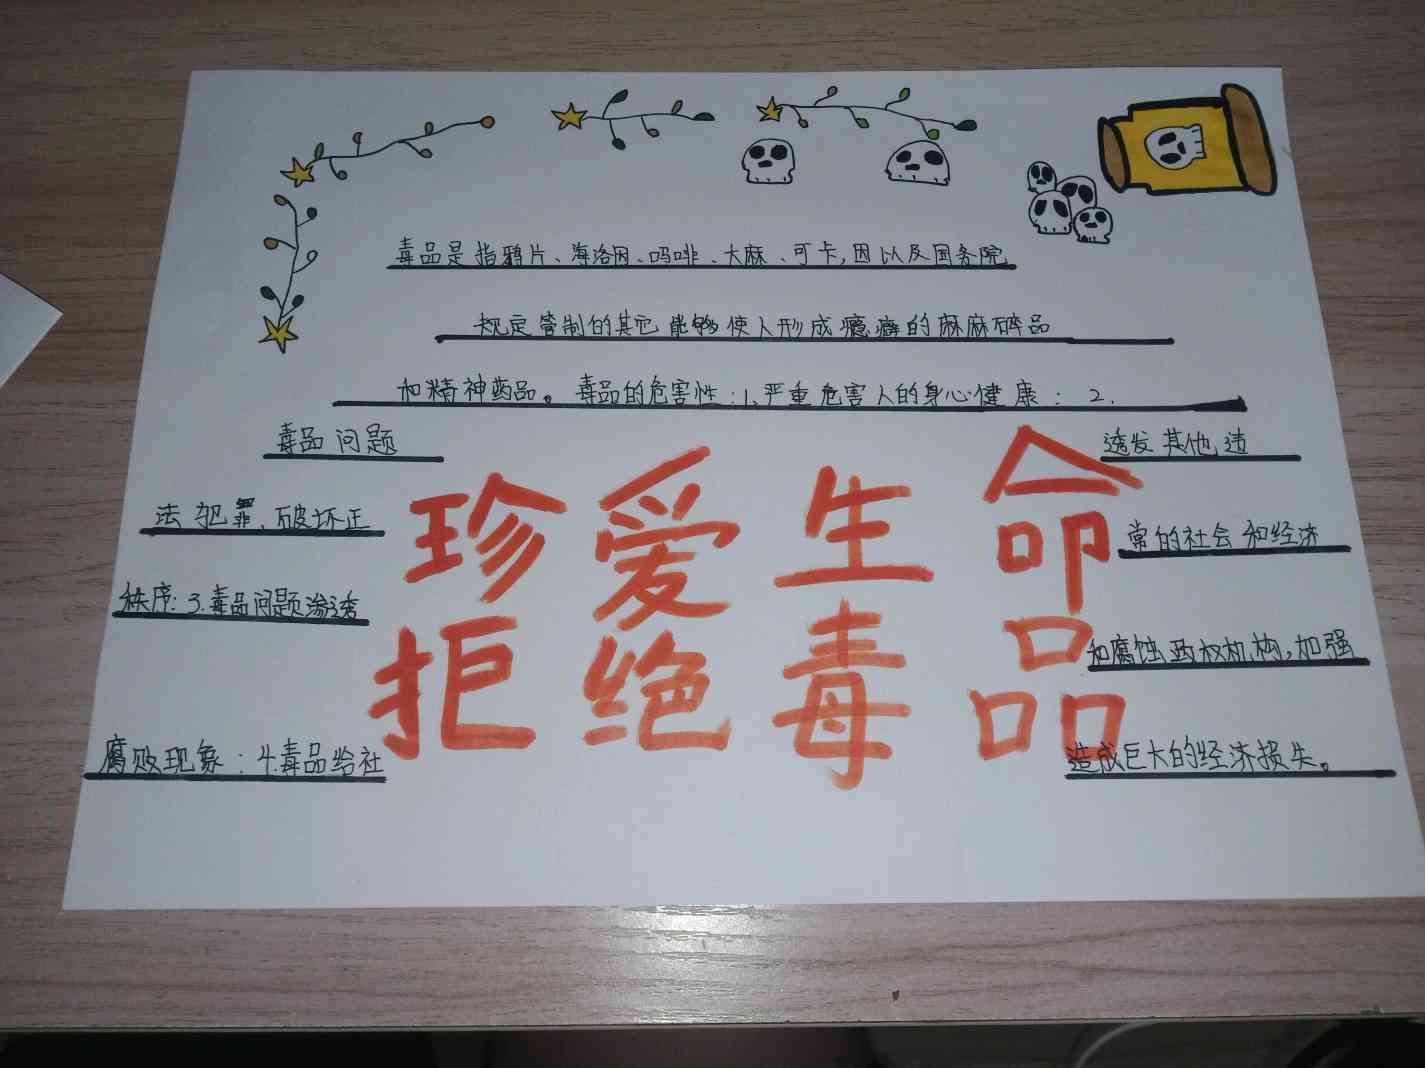 毒品是指鸦片、海洛因、吗啡、大麻、可卡,因以及国务院
规定管制的其它能够使人形成瘾癖的麻麻碎品
和精神药品。毒品的危害性:1、严重危害人的身心健康: 2.
毒品问题 透发其他造
法犯罪、破坏正 常的社会和经济
秩序:3.毒品问题渗透 和腐蚀政权机构,加强
腐败现象:4.毒品给社 造成巨大的经济损失。
珍爱生命
拒绝毒品